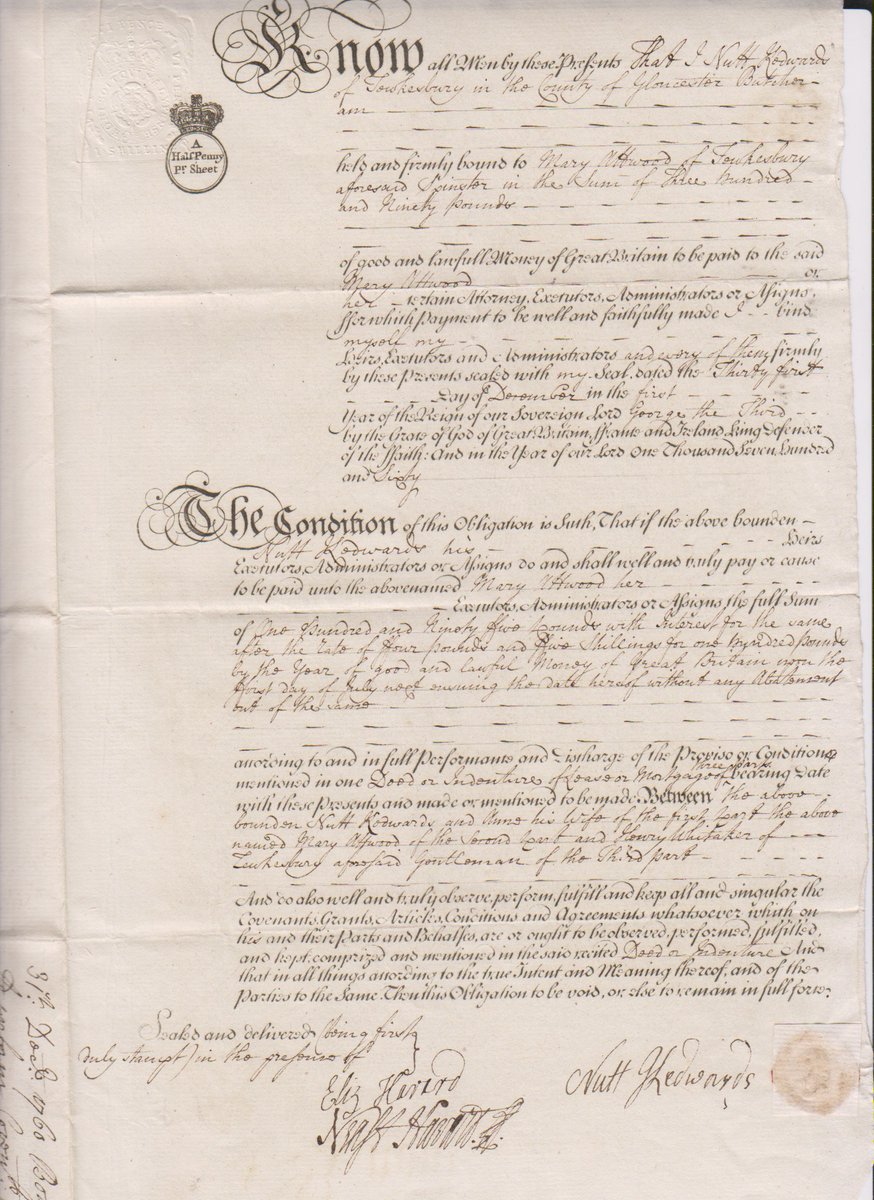 A
Half Penny
Pr. Sheet
Know all Men by these Presents That I Nutt Kedwards
of Tewkesbury in the County of Gloucester Butcher
am
held and firmly bound to Mary Attwood of Tewkesbury
aforesaid Spinster in the Sum of Three Hundred
and Ninety Pounds
of good and lawfull Money of Great Britain to be paid to the said
Mary Attwood or
her Certain Attorney, Executors, Administrators or Assigns,
For which Payment to be well and faithfully made I bind
myself my
Heirs, Executors and Administrators and every of them firmly
by these Presents sealed with my Seal, dated the Thirty first
Day of December in the first
Year of the Reign of our Sovereign Lord George the Third
by the Grace of God of Great Britain, France and Ireland, King Defender
of the Faith: And in the Year of our Lord One Thousand Seven Hundred
and Sixty
The Condition of this Obligation is Such, That if the above bounden
Nutt Kedwards his Heirs
Executors, Administrators or Assigns do and shall well and truly pay or cause
to be paid unto the abovenamed Mary Attwood her
Executors, Administrators or Assigns, the full Sum
of One Hundred and Ninety Five Pounds with Interest for the same
after the rate of Four Pounds and Five Shillings for one Hundred Pounds
by the Year of good and lawful Money of Great Britain upon the
First day of July next ensuing the date hereof without any Abatement
out of the same
according to and in full Performance and Discharge of the Proviso or Condition
mentioned in one Deed or Indenture of Lease or Mortgage of three parts bearing Date
with these Presents and made or mentioned to be made Between the above
bounden Nutt Kedwards and Anne his Wife of the first part the above
named Mary Attwood of the Second part and Henry Whitaker of
Tewkesbury aforesaid Gentleman of the Third part
And do also well and truly observe, perform, fulfill and keep all and singular the
Covenants, Grants, Articles, Conditions and Agreements whatsoever which on
his and their Parts and Behalfes, are or ought to be observed, performed, fulfilled,
and kept, comprized and mentioned in the said recited Deed or Indenture And
that in all things according to the true Intent and Meaning thereof, and of the
Parties to the Same. Then this Obligation to be void, or else to remain in full force
Sealed and delivered (being first
duly stampt) in the presence of
Eliz Havard
Nutt Kedwards
31st. Decr. 1760